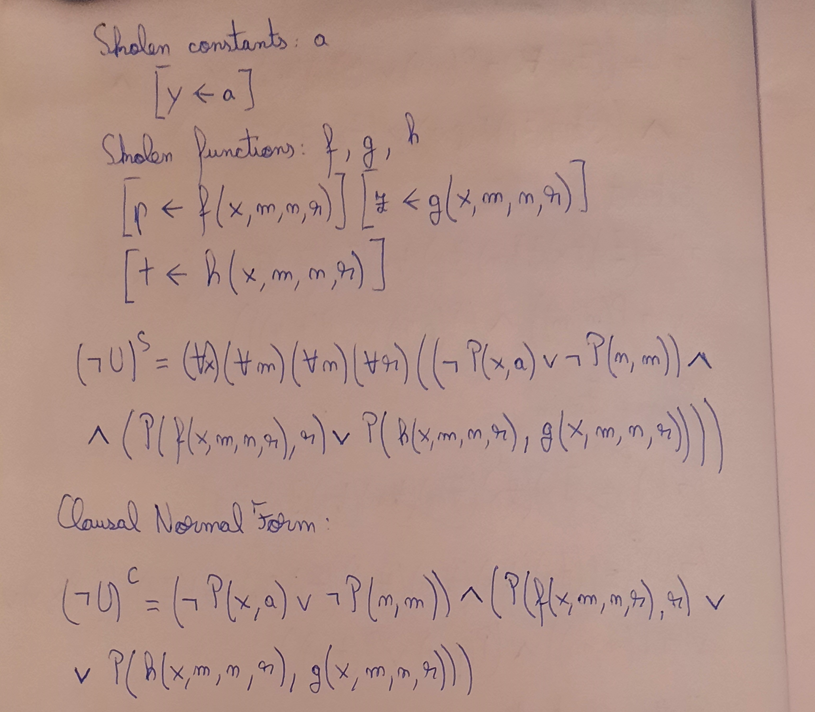 Skolen constants: a
[y ← a]
Skolen functions: f, g, h
[p ← f(x,m,n,r)] [z ← g(x,m,n,r)]
[t ← h(x,m,n,r)]
(¬U)^S = (∀x)(∀m)(∀n)(∀r)((¬P(x,a) ∨ ¬P(n,m)) ∧
∧ (P(f(x,m,n,r),r) ∨ P(h(x,m,n,r), g(x,m,n,r))))
Clausal Normal Form:
(¬U)^C = (¬P(x,a) ∨ ¬P(n,m)) ∧ (P(f(x,m,n,r),r) ∨
∨ P(h(x,m,n,r), g(x,m,n,r)))